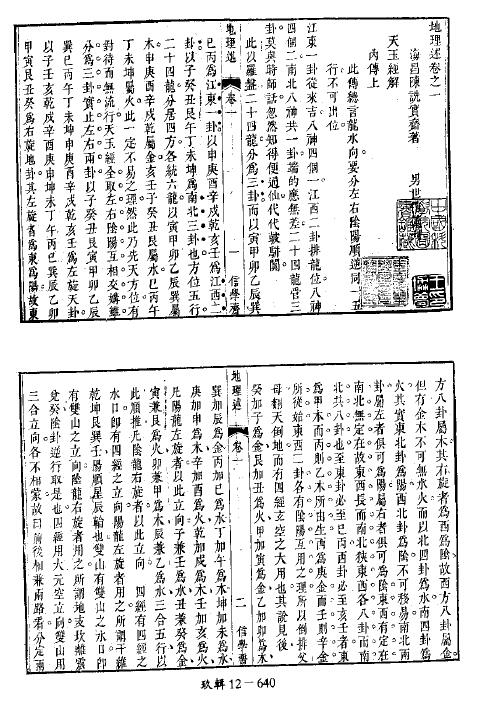 地理述卷之一
海昌陳詵實齋著 男世
天玉經解
內傳上
此傳總言龍水向要分左右陰陽順逆同一五
行不可出位
江東一卦從來吉八神四個一江西一卦排龍位八神
四個二南北八神共一卦端的應無差二十四龍管三
卦莫與時師話忽然知得便通仙代代鼓駢闐
此以羅盤二十四龍分為三卦而以寅甲卯乙辰巽
地理述 卷一 一 信學齋
巳丙為江東一卦以申庚酉辛戌乾亥壬為江西一
卦以子癸丑艮午丁未坤為南北三卦也方位五行
二十四龍分居四方各統六龍以寅甲卯乙辰巽屬
木申庚酉辛戌乾屬金亥壬子癸丑艮屬水巳丙午
丁未坤屬火此一定不易之理然此乃先天方位有
對待而無流行天玉經全取左右陰陽互相交媾雖
分為三卦實止左右兩卦以子癸丑艮寅甲卯乙辰
巽巳丙午丁未坤申庚酉辛戌乾亥壬為左旋天卦
以子壬亥乾戌辛酉庚申坤未丁午丙巳巽辰乙卯
甲寅艮丑癸為右旋地卦其左旋者為東為陽故東
方八卦屬木其右旋者為西為陰故西方八卦屬金
但有金木不可無水火而以北四卦為水南四卦為
火其實東北卦為陽西北卦為陰不可移易南北兩
卦屬左者俱可為陽屬右者俱可為陰東西有定在
南北無定在故東西長而南北狹東西各八卦而南
北共八卦也至東卦必至巳丙西卦必至亥壬者東
為甲木而丙則乙木所出生西為庚金而壬則辛金
所從始東西二卦各有陰陽互用之理所以倒排父
母翻天倒地而有四經玄空之大用也其說見後
癸加子為金艮加丑為火甲加寅為金乙加卯為水
地理述 卷一 二 信學齋
巽加辰為金丙加巳為水丁加午為木坤加未為水
庚加申為木辛加酉為火乾加戌為木壬加亥為火
凡陽龍左旋者以此立向子兼壬為水丑兼癸為金
寅兼艮為火卯兼甲為木辰兼乙為水三合五行以
此順推凡陰龍右旋者以此立向 四經有四經之
水口即有四經之立向陽龍左旋者用之所謂干維
乾坤艮巽壬陽順星辰輪也雙山有雙山之水口即
有雙山之立向陰龍右旋者用之所謂地支坎離震
兌癸陰卦逆行取是也四經用大元空立向雙山用
三合立向各不相蒙故曰前後相兼兩路看分定兩
玖輯12－640